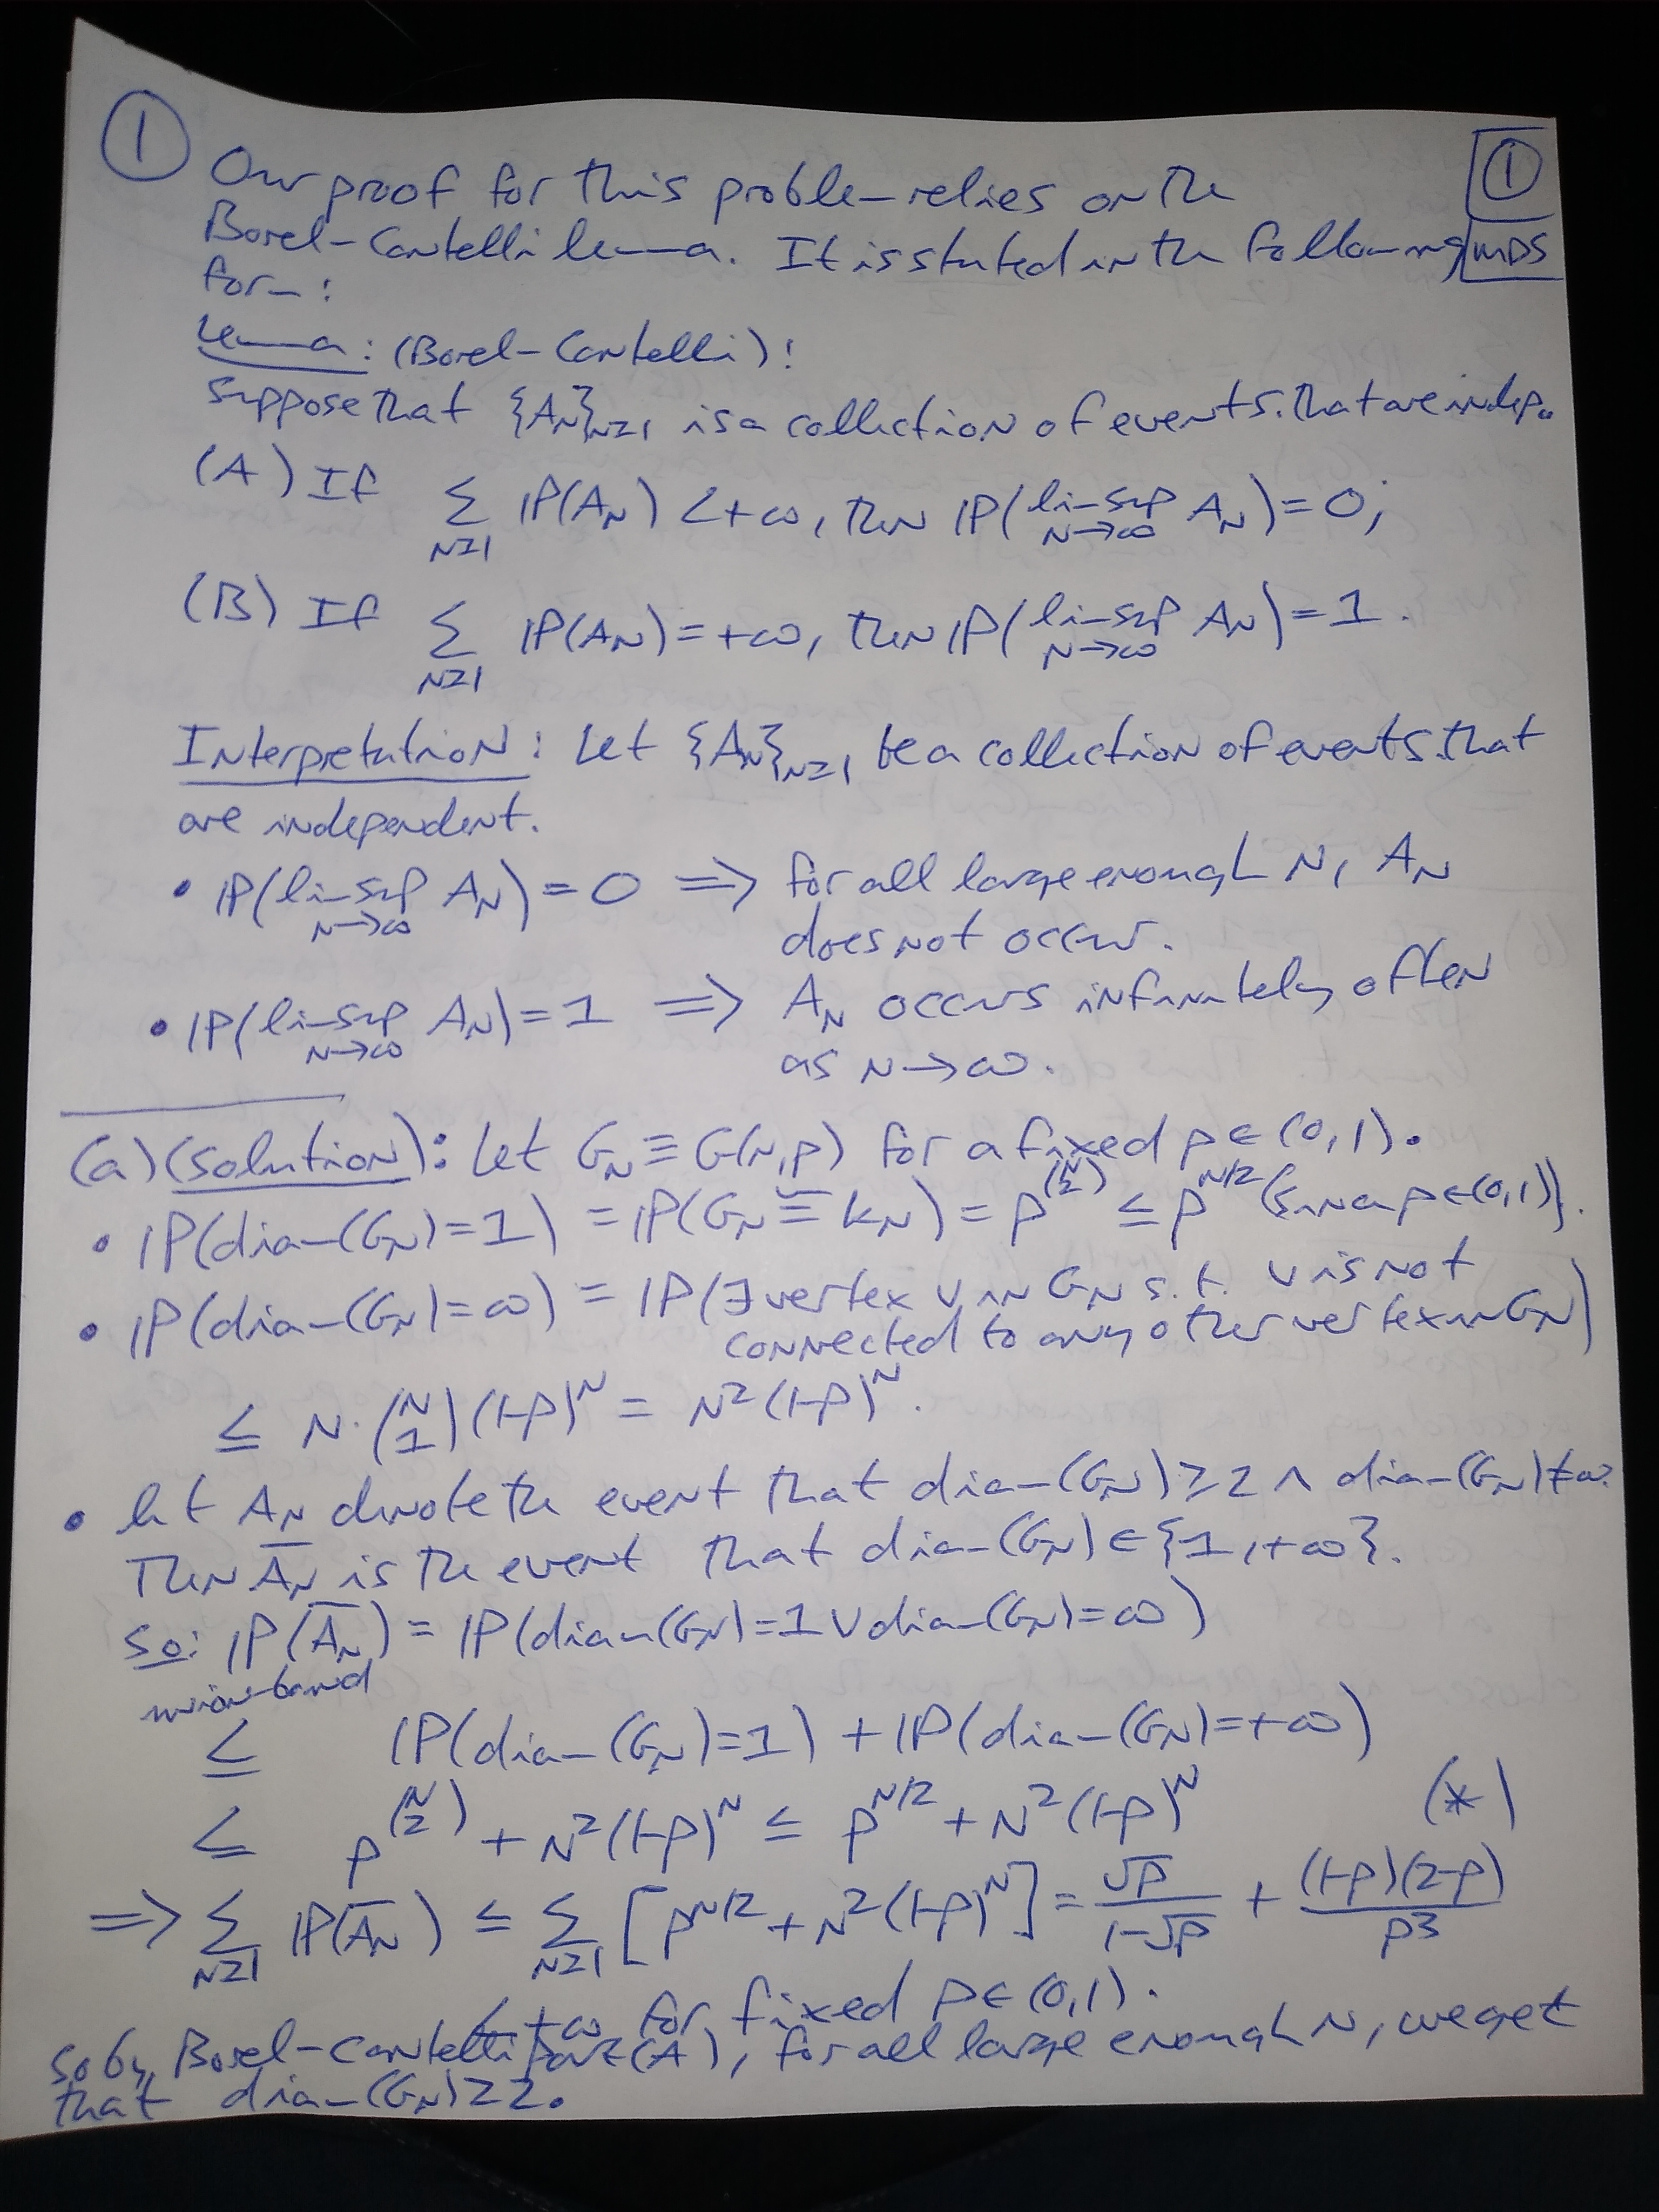 ① Our proof for this problem relies on the
①
Borel-Cantelli lemma. It is stated in the following
MDS
form:
Lemma: (Borel-Cantelli):
Suppose that {A_N}_{N≥1} is a collection of events that are indep.
(A) If Σ_{N≥1} IP(A_N) < +∞, then IP(limsup_{N→∞} A_N) = 0;
(B) If Σ_{N≥1} IP(A_N) = +∞, then IP(limsup_{N→∞} A_N) = 1.
Interpretation: Let {A_N}_{N≥1} be a collection of events that
are independent.
• IP(limsup_{N→∞} A_N) = 0 ⟹ for all large enough N, A_N
does not occur.
• IP(limsup_{N→∞} A_N) = 1 ⟹ A_N occurs infinitely often
as N→∞.
(a) (solution): Let G_N ≡ G(N,p) for a fixed p∈(0,1).
• IP(diam(G_N)=1) = IP(G_N ≅ K_N) = p^{(N choose 2)} ≤ p^{N/2} (since p∈(0,1)).
• IP(diam(G_N)=∞) = IP(∃ vertex v in G_N s.t. v is not
connected to any other vertex in G_N)
≤ N·(N choose 1)(1-p)^N = N²(1-p)^N.
• let A_N denote the event that diam(G_N)≥2 ∧ diam(G_N)≠∞.
Then \overline{A_N} is the event that diam(G_N)∈{1,+∞}.
So: IP(\overline{A_N}) = IP(diam(G_N)=1 ∨ diam(G_N)=∞)
union-bound
≤ IP(diam(G_N)=1) + IP(diam(G_N)=+∞)
≤ p^{(N choose 2)} + N²(1-p)^N ≤ p^{N/2} + N²(1-p)^N (*)
⟹ Σ_{N≥1} IP(\overline{A_N}) ≤ Σ_{N≥1} [p^{N/2} + N²(1-p)^N] = √p/(1-√p) + (1-p)(2-p)/p³
< +∞ for fixed p∈(0,1).
So by Borel-Cantelli part (A), for all large enough N, we get
that diam(G_N)≥2.